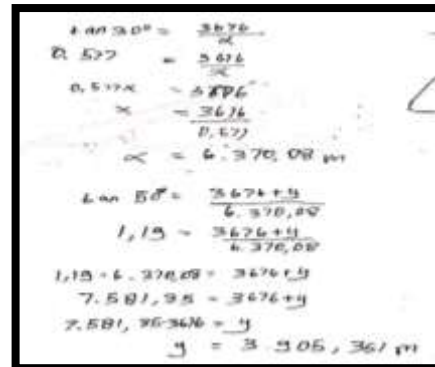 tan 30° = 3676/x
0,577 = 3676/x
0,577x = 3676
x = 3676/0,577
x = 6.370,08 m
tan 50° = 3676+y/6.370,08
1,19 = 3676+y/6.370,08
1,19 · 6.370,08 = 3676+y
7.581,35 = 3676+y
7.581,35-3676 = y
y = 3.905,361 m